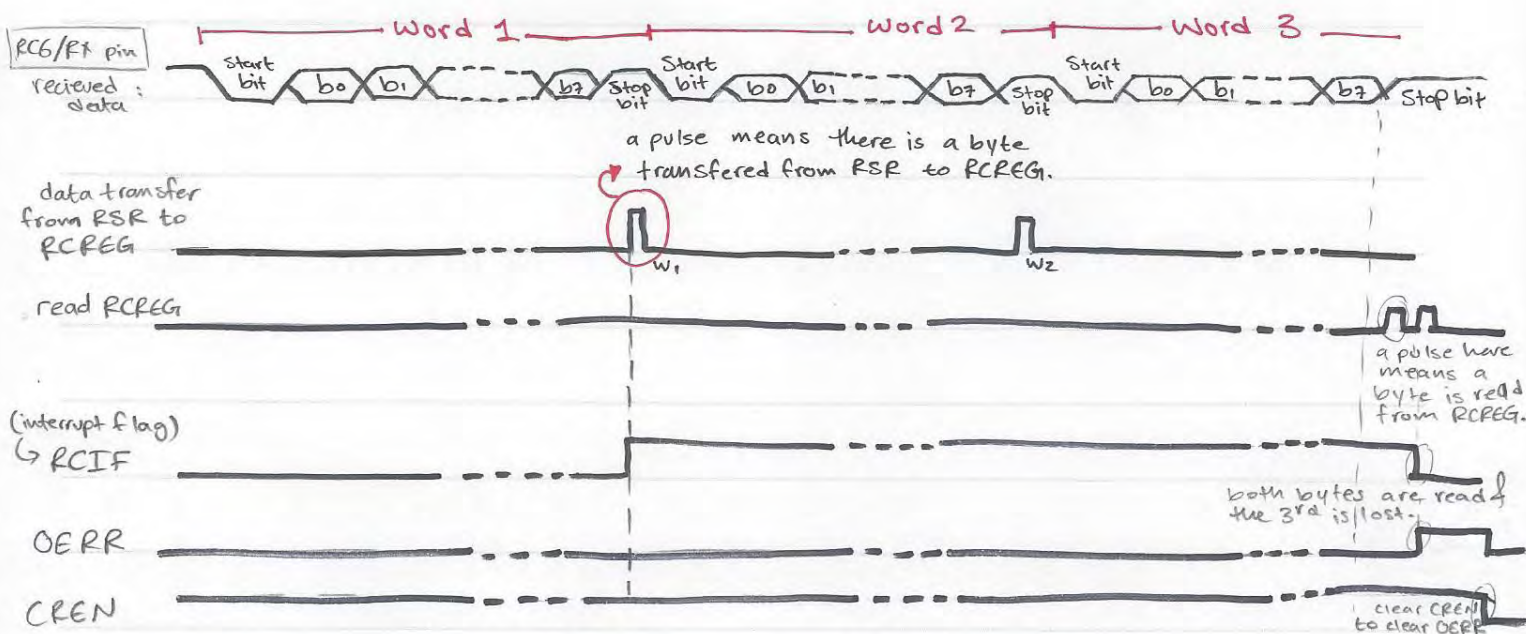 word 1 word 2 word 3
RC6/RX pin
recieved : data
Start bit b0 b1 b7 Stop bit Start bit b0 b1 b7 Stop bit Start bit b0 b1 b7 Stop bit
a pulse means there is a byte
transfered from RSR to RCREG.
data transfer
from RSR to
RCREG
W1 W2
read RCREG
a pulse here
means a
byte is read
from RCREG.
(interrupt flag)
↳ RCIF
both bytes are read &
the 3rd is lost.
OERR
CREN
clear CREN
to clear OERR